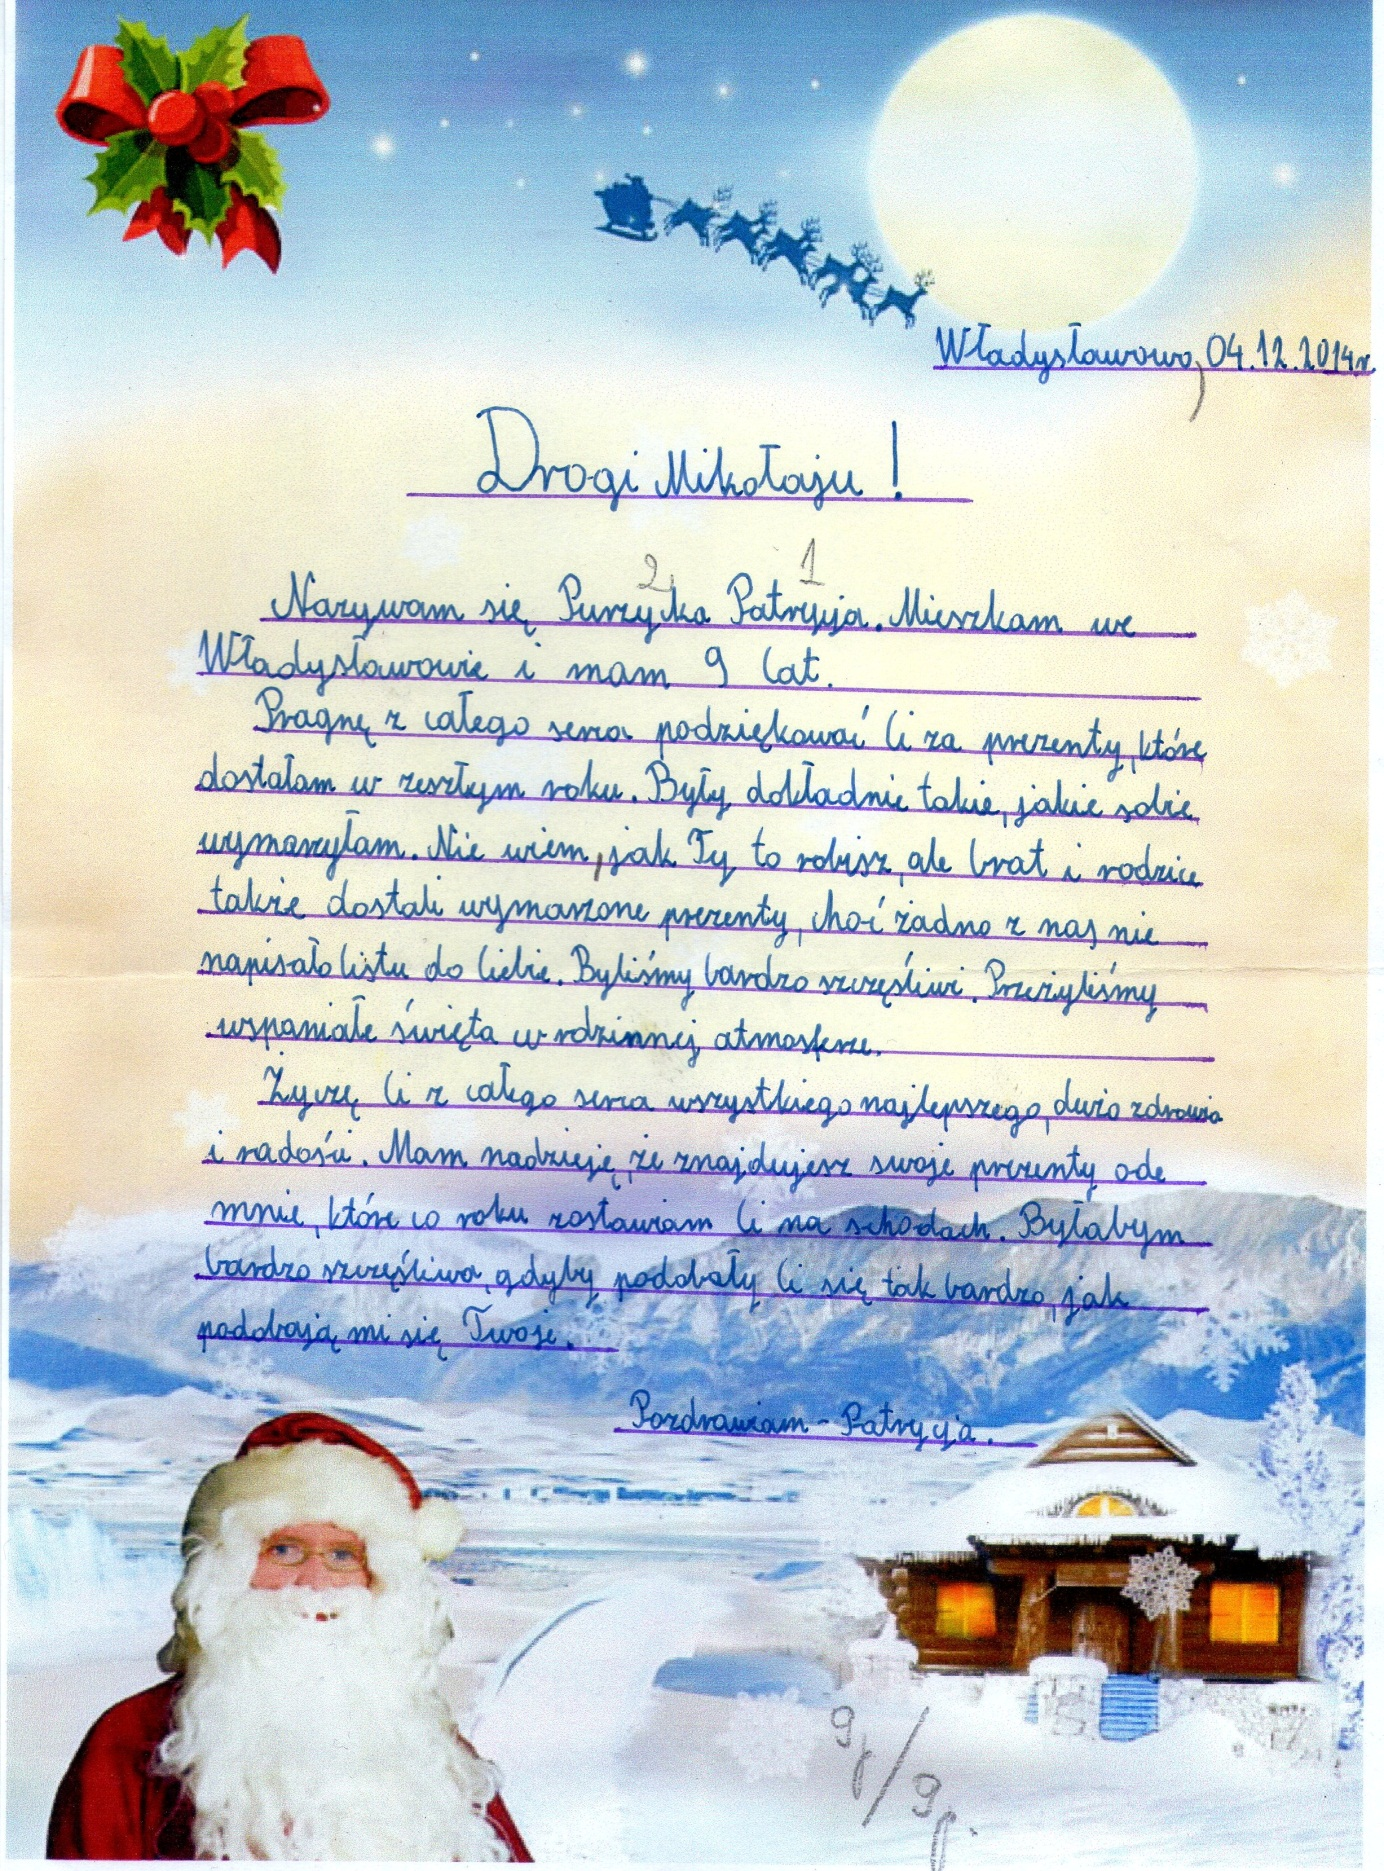 Władysławowo, 04.12.2014r.
Drogi Mikołaju!
2 1
Nazywam się Purzyka Patrycja. Mieszkam we
Władysławowie i mam 9 lat.
Pragnę z całego serca podziękować Ci za prezenty, które
dostałam w zeszłym roku. Były dokładnie takie, jakie sobie
wymarzyłam. Nie wiem, jak Ty to robisz, ale brat i rodzice
także dostali wymarzone prezenty, choć żadno z nas nie
napisało listu do Ciebie. Byliśmy bardzo szczęśliwi. Przeżyliśmy
wspaniałe święta w rodzinnej atmosferze.
Życzę Ci z całego serca wszystkiego najlepszego, dużo zdrowia
i radości. Mam nadzieję, że znajdujesz swoje prezenty ode
mnie, które co roku zostawiam Ci na schodach. Byłabym
bardzo szczęśliwa, gdyby podobały Ci się tak bardzo, jak
podobają mi się Twoje.
Pozdrawiam - Patrycja.
9p/9p.